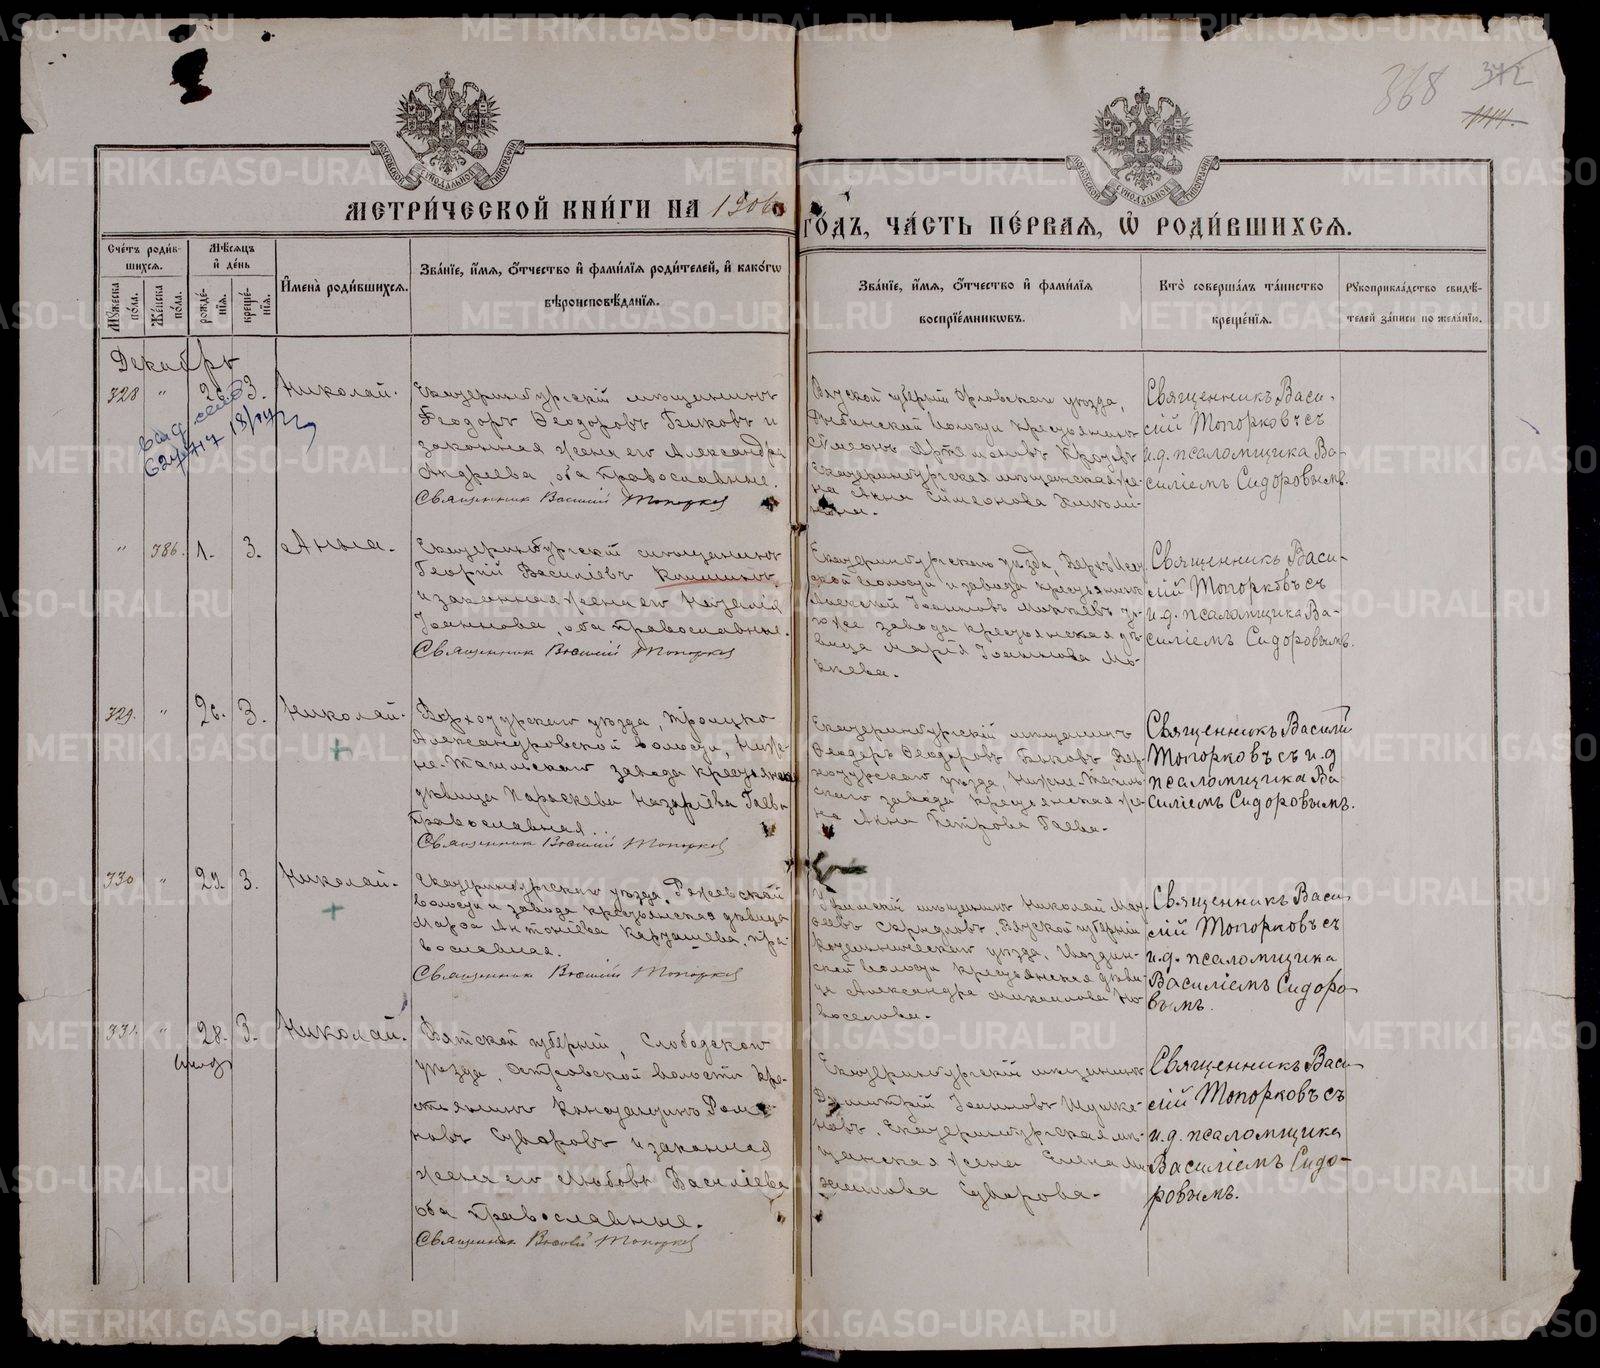 METRIKI.GASO-URAL.RU
368
МОСКОВСКОЙ СѴНОДАЛЬНОЙ ТИПОГРАФІИ
МОСКОВСКОЙ СѴНОДАЛЬНОЙ ТИПОГРАФІИ
МЕТРИ́ЧЕСКОЙ КНИ́ГИ НА 1906
ГО́ДЪ, ЧА́СТЬ ПЕ́РВАЯ, Ѡ҆ РОДИ́ВШИХСЯ.
Сче́тъ роди́в-
шихся.
Мѣ́сяцъ
и҆ де́нь
Мꙋ́жеска по́ла.
Же́нска по́ла.
рожде́-
нїя.
креще́-
нїя.
И҆мена̀ роди́вшихся.
Зва́нїе, и҆́мя, ѻ҆́тчество и҆ фами́лїя роди́телей, и҆ како́гѡ
вѣроисповѣ́данїя.
Зва́нїе, и҆́мя, ѻ҆́тчество и҆ фами́лїя
воспрїе́мникѡвъ.
Кто̀ соверша́лъ та́инство
креще́нїя.
Рꙋкоприкла́дство свидѣ́-
телей за́писи по жела́нїю.
Декабрь
328 " 26. 3. Николай.
Екатеринбургскій мѣщанинъ
Ѳеодоръ Ѳеодоровъ Быковъ и
законная жена его Александра
Андреева, оба православные.
Священник Василий Топорков
Вятской губерніи Орловскаго уѣзда,
волости крестьянинъ
Симеонъ
Екатеринбургская мѣщанская же-
на Анна Симеонова
Священникъ Васи-
лій Топорковъ съ
и.д. псаломщика Ва-
силіемъ Сидоровымъ.
" 386. 1. 3. Анна.
Екатеринбургскій мѣщанинъ
Георгій Василіевъ
и законная жена его
Іоаннова, оба православные.
Священник Василий Топорков
Екатеринбургскаго уѣзда, Верхъ-Исет-
ской волости и завода крестьянинъ
Алексій Іоанновъ
же завода крестьянская дѣ-
вица Марія Іоаннова
Священникъ Васи-
лій Топорковъ съ
и.д. псаломщика Ва-
силіемъ Сидоровымъ.
329. " 26. 3. Николай.
Верхотурскаго уѣзда, Троицко-
Александровской волости, Ниж-
не-Тагильскаго завода крестьянская
дѣвица Параскева Назаріева Гаева
православная.
Священник Василий Топорков
Екатеринбургскій мѣщанинъ
Ѳеодоръ Ѳеодоровъ Быковъ, Вер-
хотурскаго уѣзда, Нижне-Тагиль-
скаго завода крестьянская же-
на Анна Петрова Гаева.
Священникъ Василій
Топорковъ съ и.д
псаломщика Ва-
силіемъ Сидоровымъ.
330 " 27. 3. Николай.
Екатеринбургскаго уѣзда, Режевской
волости и завода крестьянская дѣвица
Марѳа Антоніева пра-
вославная.
Священник Василий Топорков
мѣщанинъ Николай
Вятской губерніи
уѣзда,
волости крестьянская дѣви-
ца Александра Михаилова Но-
воселова.
Священникъ Васи-
лій Топорковъ съ
и.д. псаломщика
Василіемъ Сидоро-
вымъ.
331. " 28. 3. Николай.
Вятской губерніи, Слободскаго
уѣзда, волости кре-
стьянинъ Константинъ Рома-
новъ Суворовъ и законная
жена его Любовь Василіева
оба православные.
Священник Василий Топорков
Екатеринбургскій мѣщанинъ
Димитрій Іоанновъ
Екатеринбургская мѣ-
щанская жена Елена
Суворова.
Священникъ Васи-
лій Топорковъ съ
и.д. псаломщика
Василіемъ Сидо-
ровымъ.